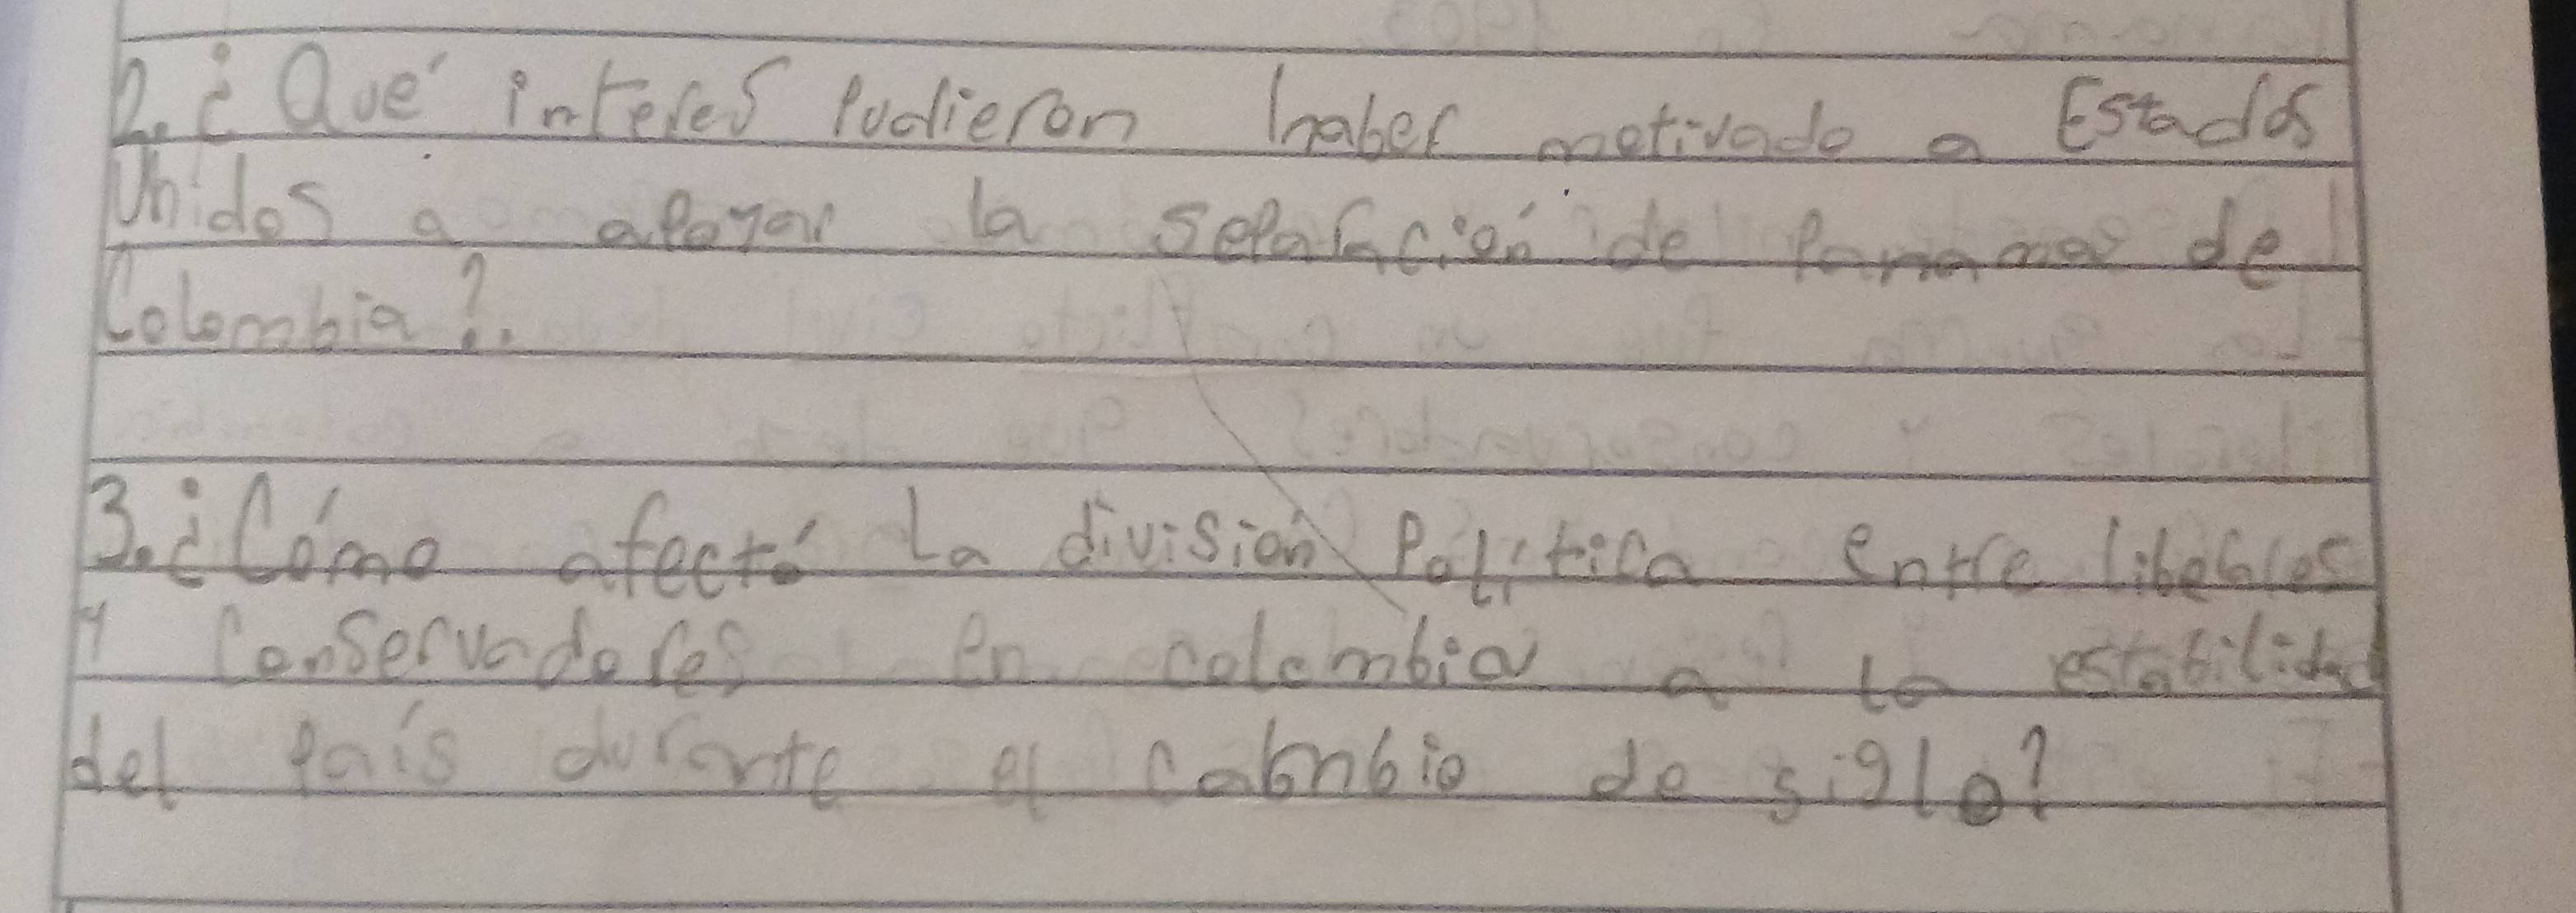 2. ¿Qué interes pudieron haber motivado a Estados
Unidos a apoyar la separación de Panamá de
Colombia?.
3. ¿Cómo afectó La división Política entre liberales
y Conservadores en colombia a la estabilidad
del país durante el cambio de siglo?